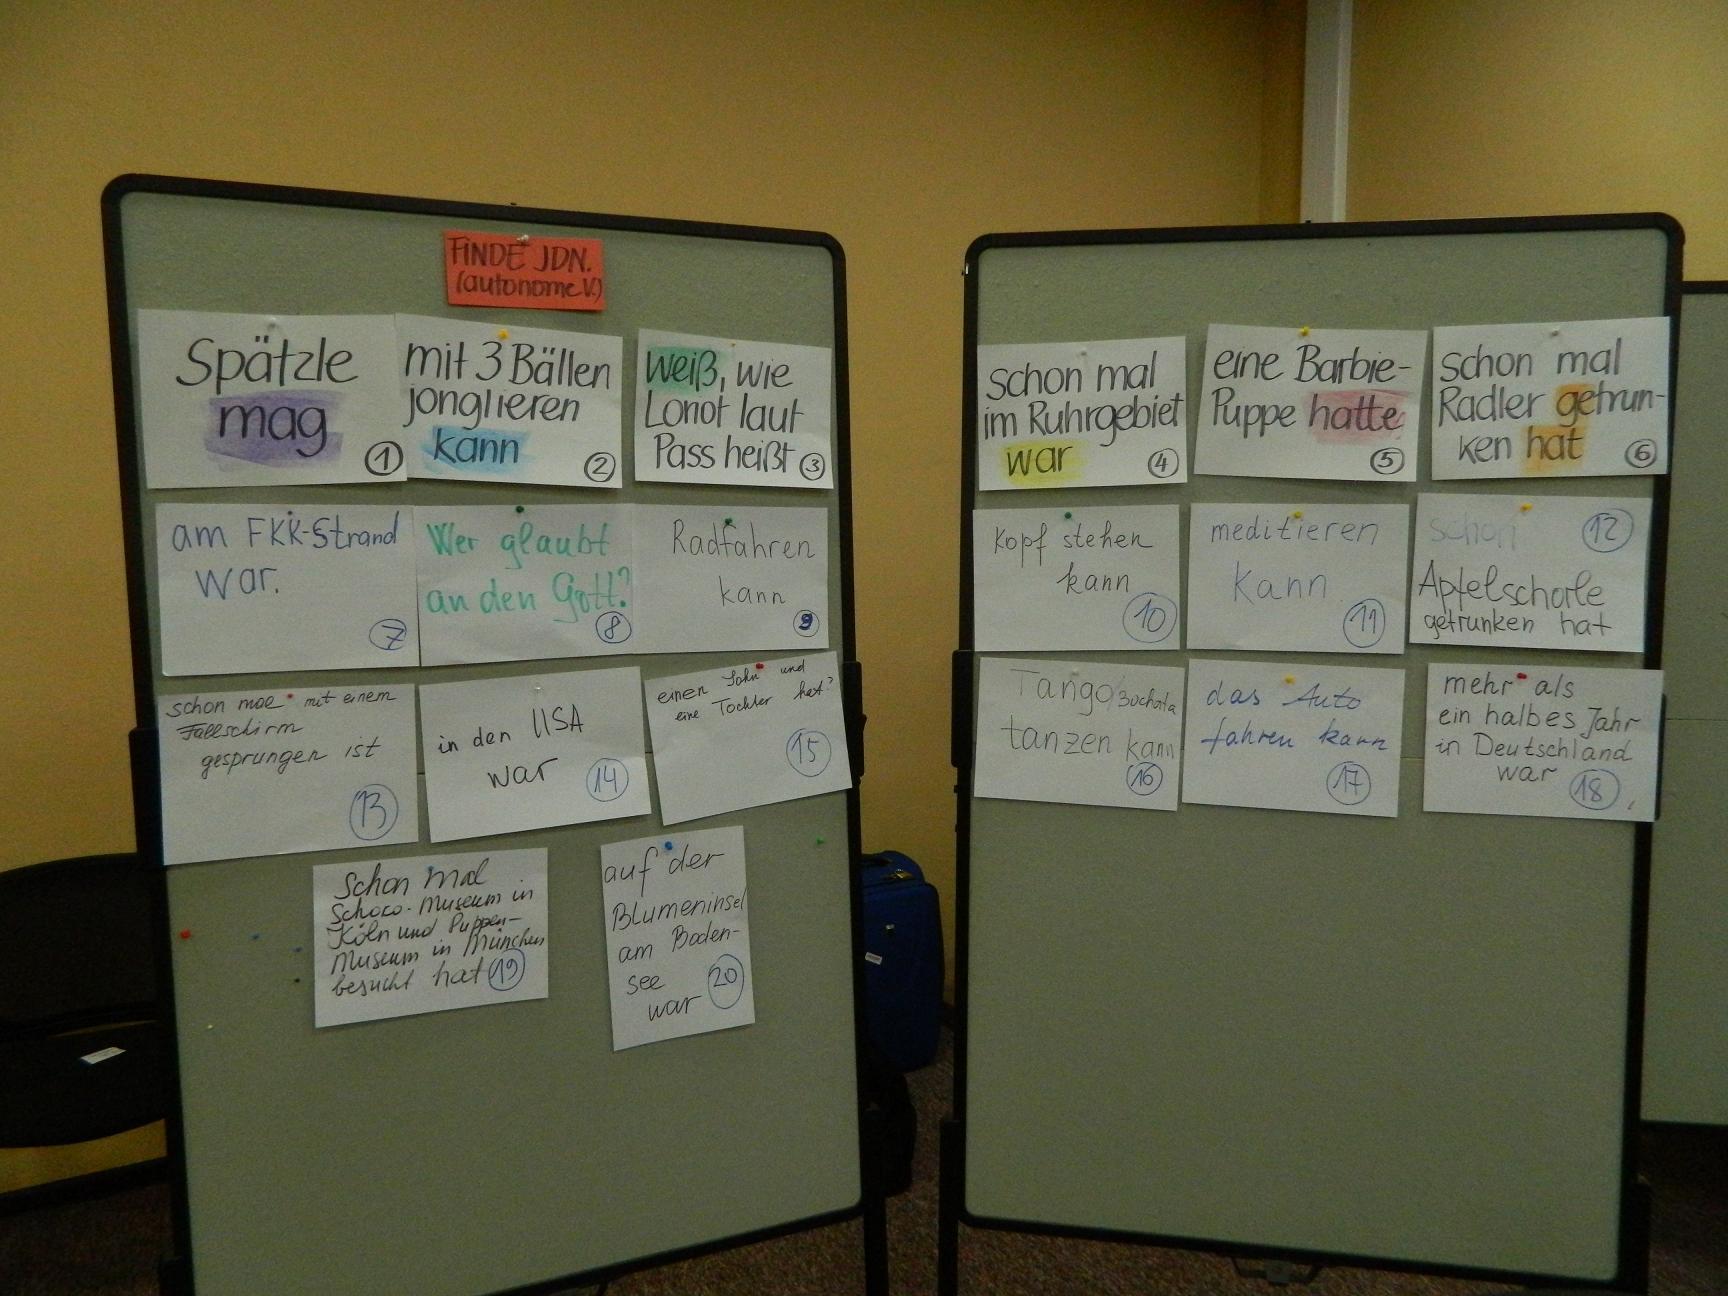 FINDE JDN.
(autonome V.)
Spätzle
mag
1
mit 3 Bällen
jonglieren
kann
2
weiß, wie
Lonot laut
Pass heißt
3
am FKK-Strand
war.
7
Wer glaubt
an den Gott?
8
Radfahren
kann
9
schon mal mit einem
Fallschirm
gesprungen ist
13
in den USA
war
14
einen Sohn und
eine Tochter hat?
15
Schon mal
Schoco-Museum in
Köln und Puppen-
Museum in München
besucht hat
19
auf der
Blumeninsel
am Boden-
see
war
20
schon mal
im Ruhrgebiet
war
4
eine Barbie-
Puppe hatte
5
schon mal
Radler getrun-
ken hat
6
Kopf stehen
kann
10
meditieren
kann
11
schon
12
Apfelschorle
getrunken hat
Tango/Bachata
tanzen kann
16
das Auto
fahren kann
17
mehr als
ein halbes Jahr
in Deutschland
war
18